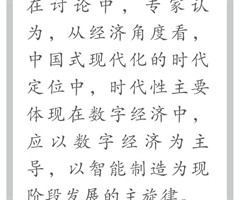 在讨论中，专家认
为，从经济角度看，
中国式现代化的时代
定位中，时代性主要
体现在数字经济中，
应以数字经济为主
导，以智能制造为现
阶段发展的主旋律。